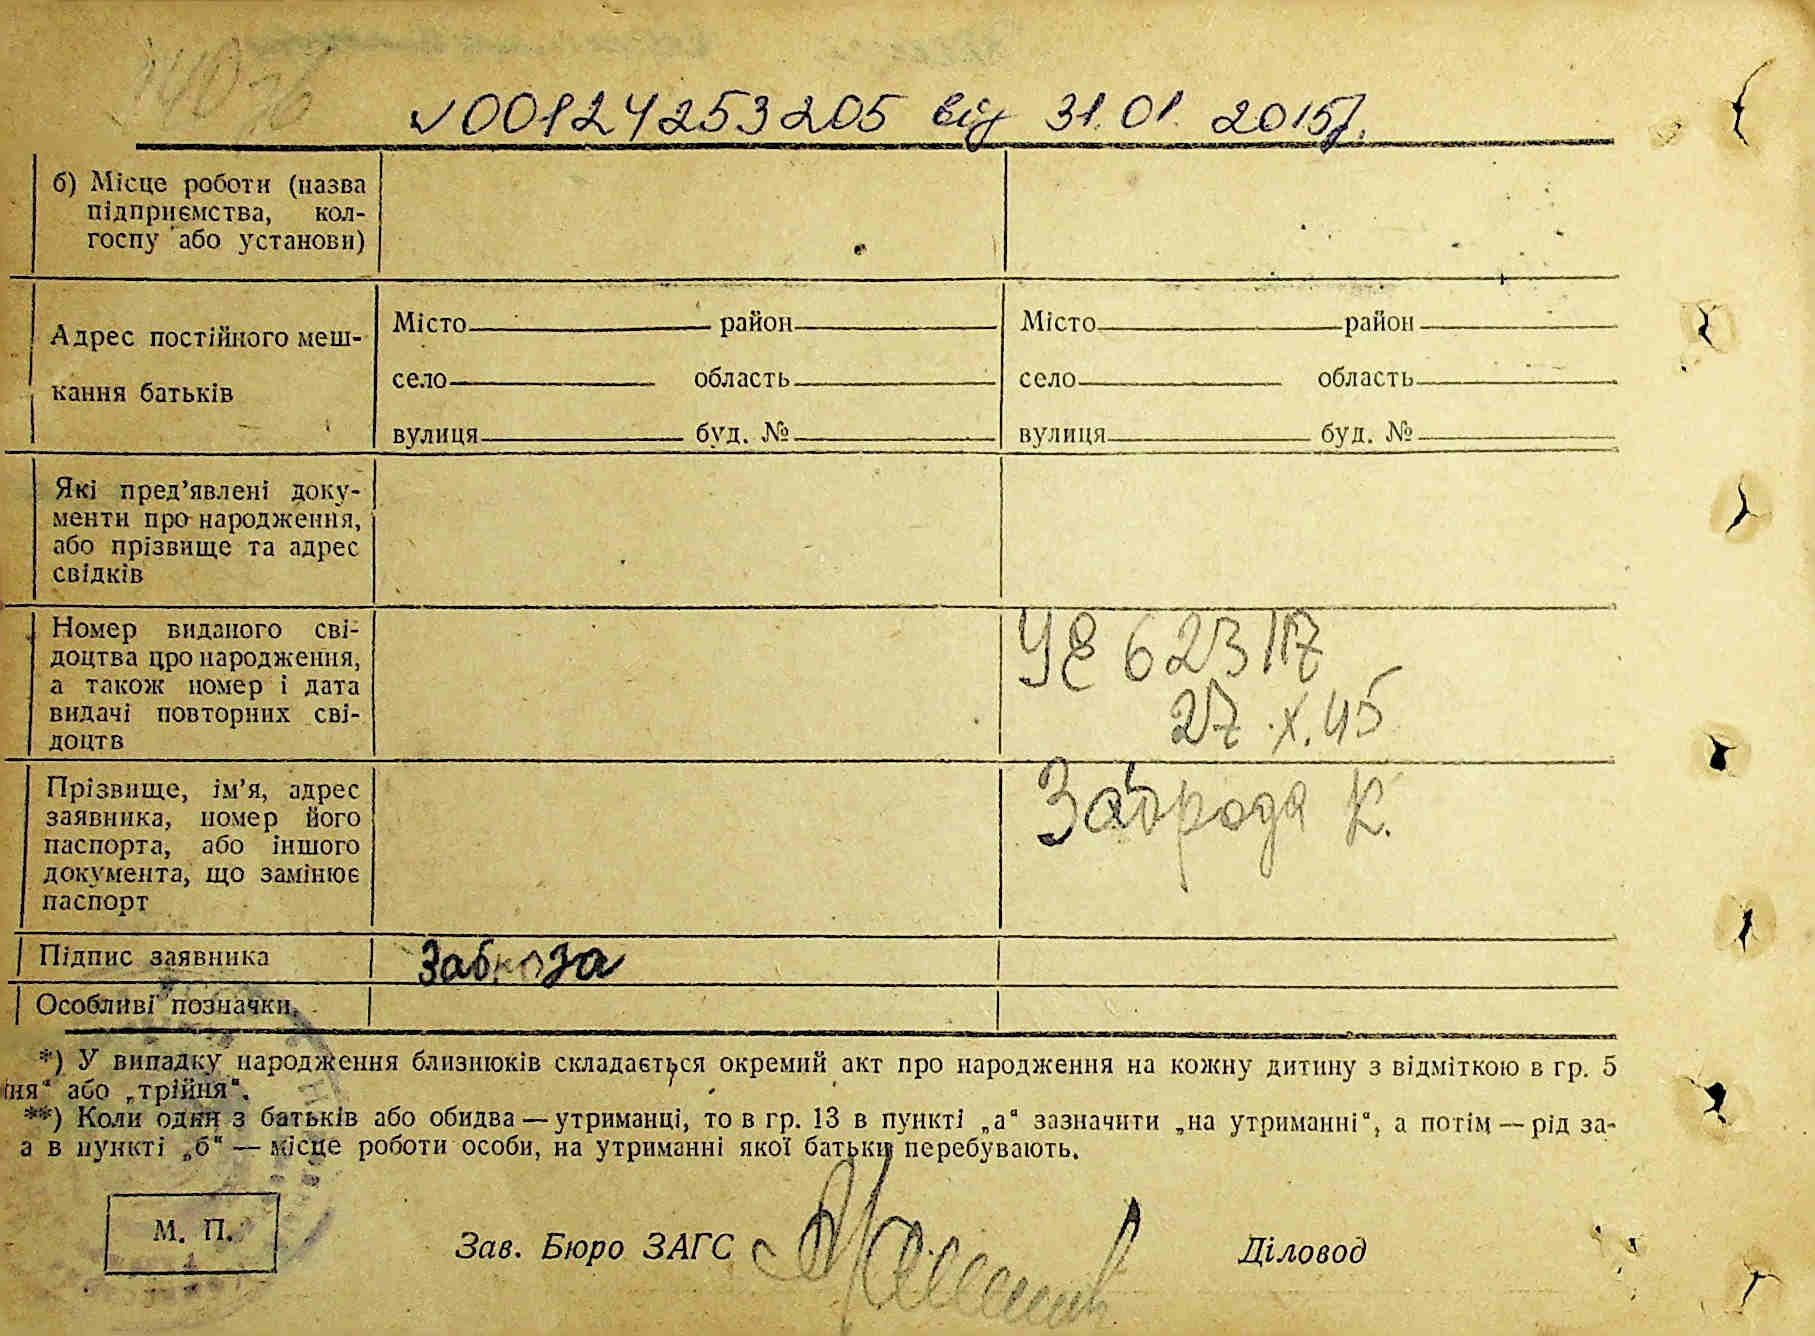 00124253205 від 31.01.2015р.
б) Місце роботи (назва
підприємства, кол-
госпу або установи)
Адрес постійного меш-
кання батьків
Місто район
село область
вулиця буд. №
Місто район
село область
вулиця буд. №
Які пред’явлені доку-
менти про народження,
або прізвище та адрес
свідків
Номер виданого сві-
доцтва про народження,
а також номер і дата
видачі повторних сві-
доцтв
УЄ 623117
27.X.45
Прізвище, ім’я, адрес
заявника, номер його
паспорта, або іншого
документа, що замінює
паспорт
Заброда К.
Підпис заявника
Особливі позначки.
*) У випадку народження близнюків складається окремий акт про народження на кожну дитину з відміткою в гр. 5
або „трійня“.
**) Коли один з батьків або обидва — утриманці, то в гр. 13 в пункті „а“ зазначити „на утриманні“, а потім — рід за-
а в пункті „б“ — місце роботи особи, на утриманні якої батьки перебувають.
М. П.
Зав. Бюро ЗАГС
Діловод